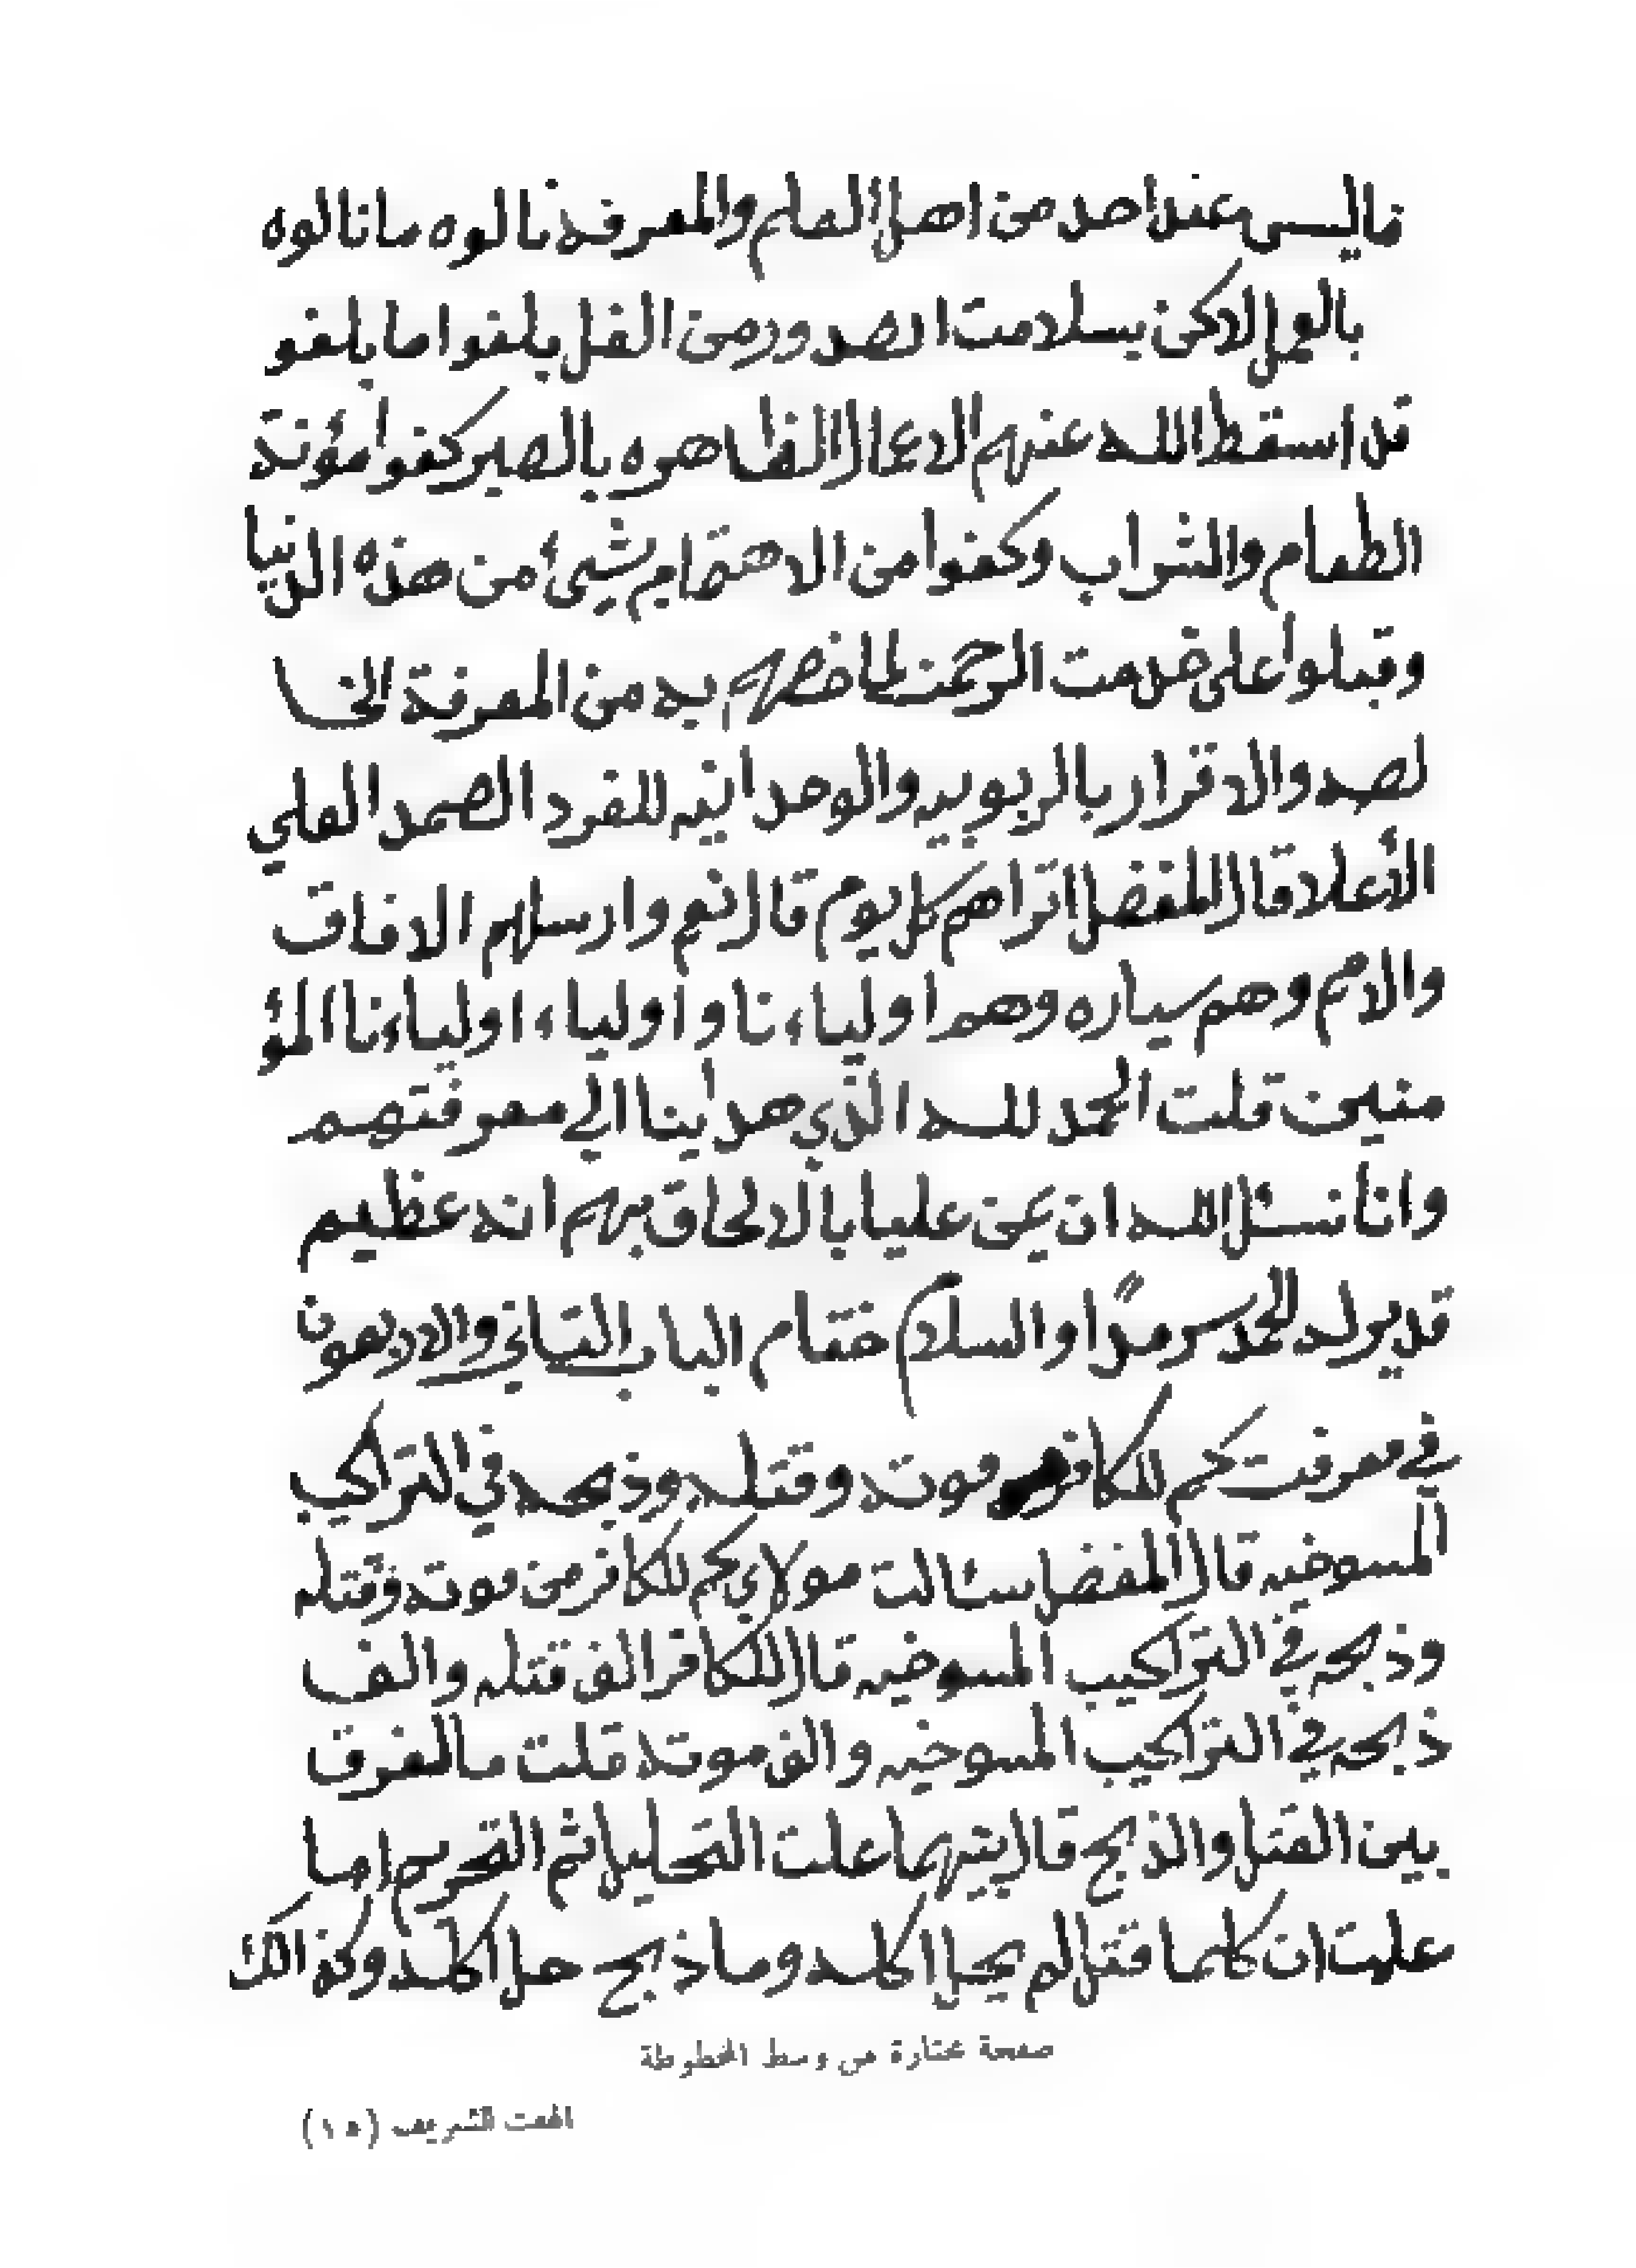 ما ليس عند احد من اهل العلم والمعرفه نالوه ما نالوه
بالعمل لاكن بسلامت الصدور من الغل بلغوا ما بلغو
قد اسقط الله عنهم الاعمال الظاهره بالصبر كفوا مؤنة
الطعام والشراب وكفوا من الاهتمام بشيئ من هذه الدنيا
وقبلوا على خدمت الرحمن لما خصهم به من المعرفة الخا
لصه والاقرار بالربوبيه والوحدانيه للفرد الصمد العلي
الأعلا قال المفضل اتراهم كل يوم قال نعم وارسلهم الافاق
والامم وهم سياره وهم اولياءنا واولياء اولياءنا المؤ
منين قلت الحمد لله الذي هداينا الي معرفتهم
وانا نسئل الله ان يمن علينا بالالحاق بهم انه عظيم
قدير له الحمد سرمداً والسلام ختام الباب الثاني والاربعون
في معرفت كم للكافر من موته وقتله وذبحه في التراكيب
المسوخيه قال المفضل سئالت مولاي كم للكافر من موته وقتله
وذبحه في التراكيب المسوخيه قال للكافر الف قتله والف
ذبحه في التراكيب المسوخيه والف موته قلت ما الفرق
بين القتل والذبح قال بينهما علت التحليل ثم التحريم اما
علمت ان كلما قتل لم يحل اكله وما ذبح حل اكله وكذالك
صفحة مختارة من وسط المخطوطة
الهفت الشريف (١٥)